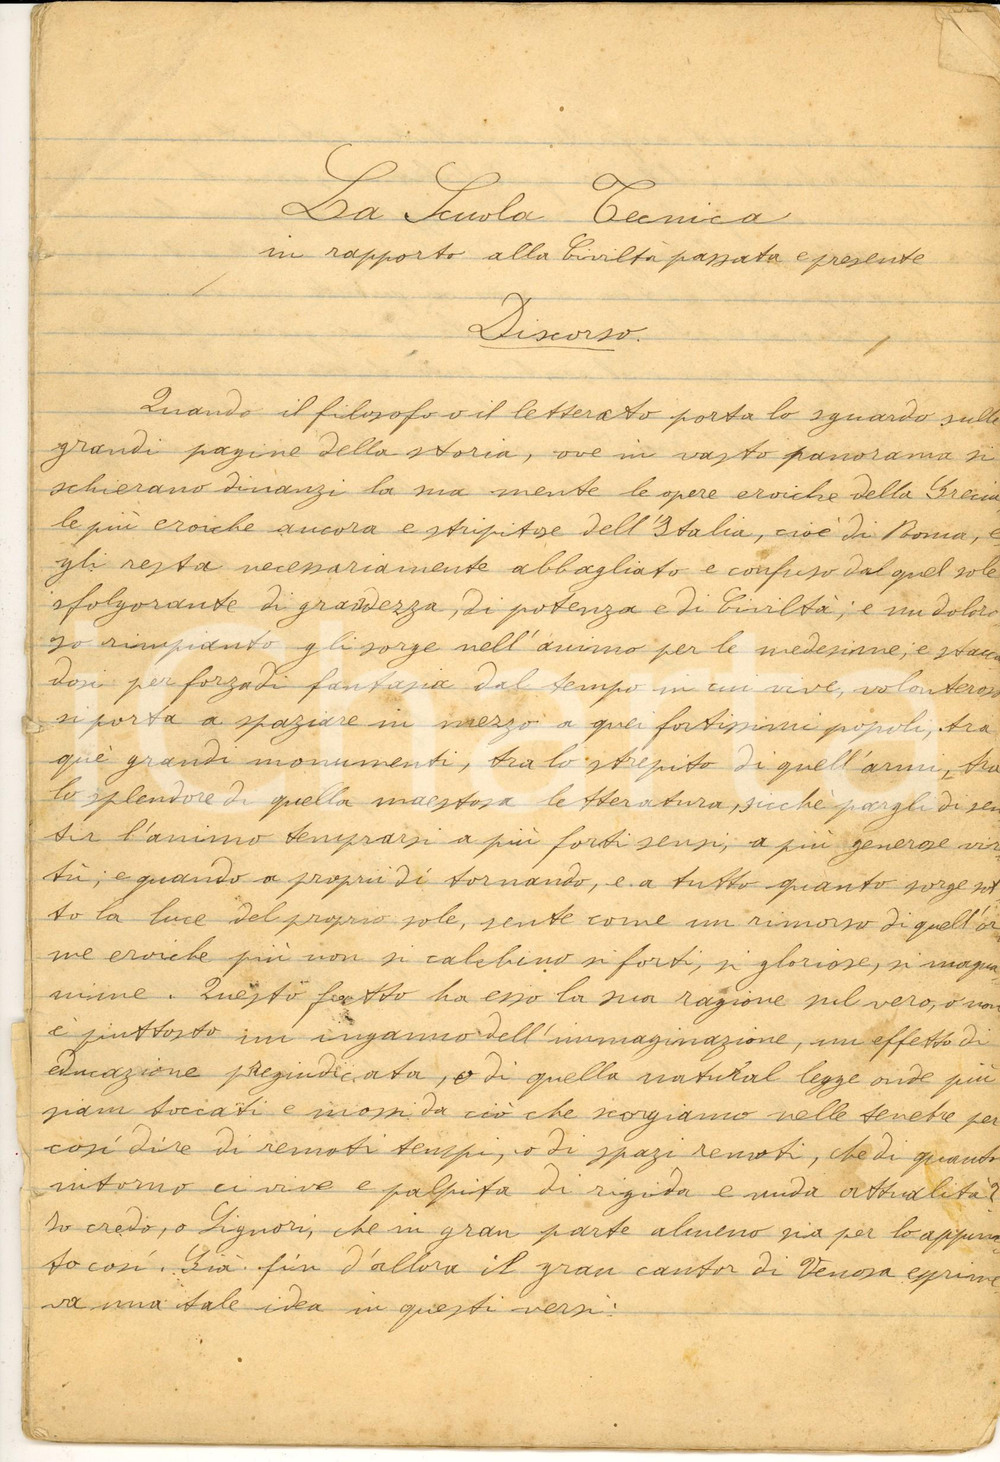 La Scuola Tecnica
in rapporto alla Civiltà passata e presente
Discorso.
Quando il filosofo o il letterato porta lo sguardo sulle
grandi pagine della storia, ove in vasto panorama si
schierano dinanzi la sua mente le opere eroiche della Grecia,
le più eroiche ancora e stupitose dell'Italia, cioè di Roma, e
gli resta necessariamente abbagliato e confuso dal quel sole
sfolgorante di grandezza, di potenza e di Civiltà; e un doloro
so rimpianto gli sorge nell'animo per le medesime; e stacca
dosi per forza di fantasia dal tempo in cui vive, volonteroso
si porta a spaziare in mezzo a quei fortissimi popoli, tra
què grandi monumenti, tra lo strepito di quell'armi, tra
lo splendore di quella maestosa letteratura, sicchè pargli di sen
tir l'animo temprarsi a più forti sensi, a più generose vir
tù; e quando a proprii dì tornando, e a tutto quanto sorge sot
to la luce del proprio sole, sente come un rimorso di quell'or
me eroiche più non si calchino si forti, si gloriose, si magna
nime. Questo fatto ha esso la sua ragione sul vero, o non
è piuttosto un inganno dell'immaginazione, un effetto di
educazione pregiudicata, o di quella natural legge onde più
siam toccati e mossi da ciò che scorgiamo nelle tenebre per
così dire di remoti tempi, o di spazi remoti, che di quanto
intorno ci vive e palpita di rigida e nuda attualità?
Io credo, o Signori, che in gran parte almeno sia per lo appun
to così. Già fin d'allora il gran cantor di Venosa esprime
va una tale idea in questi versi: